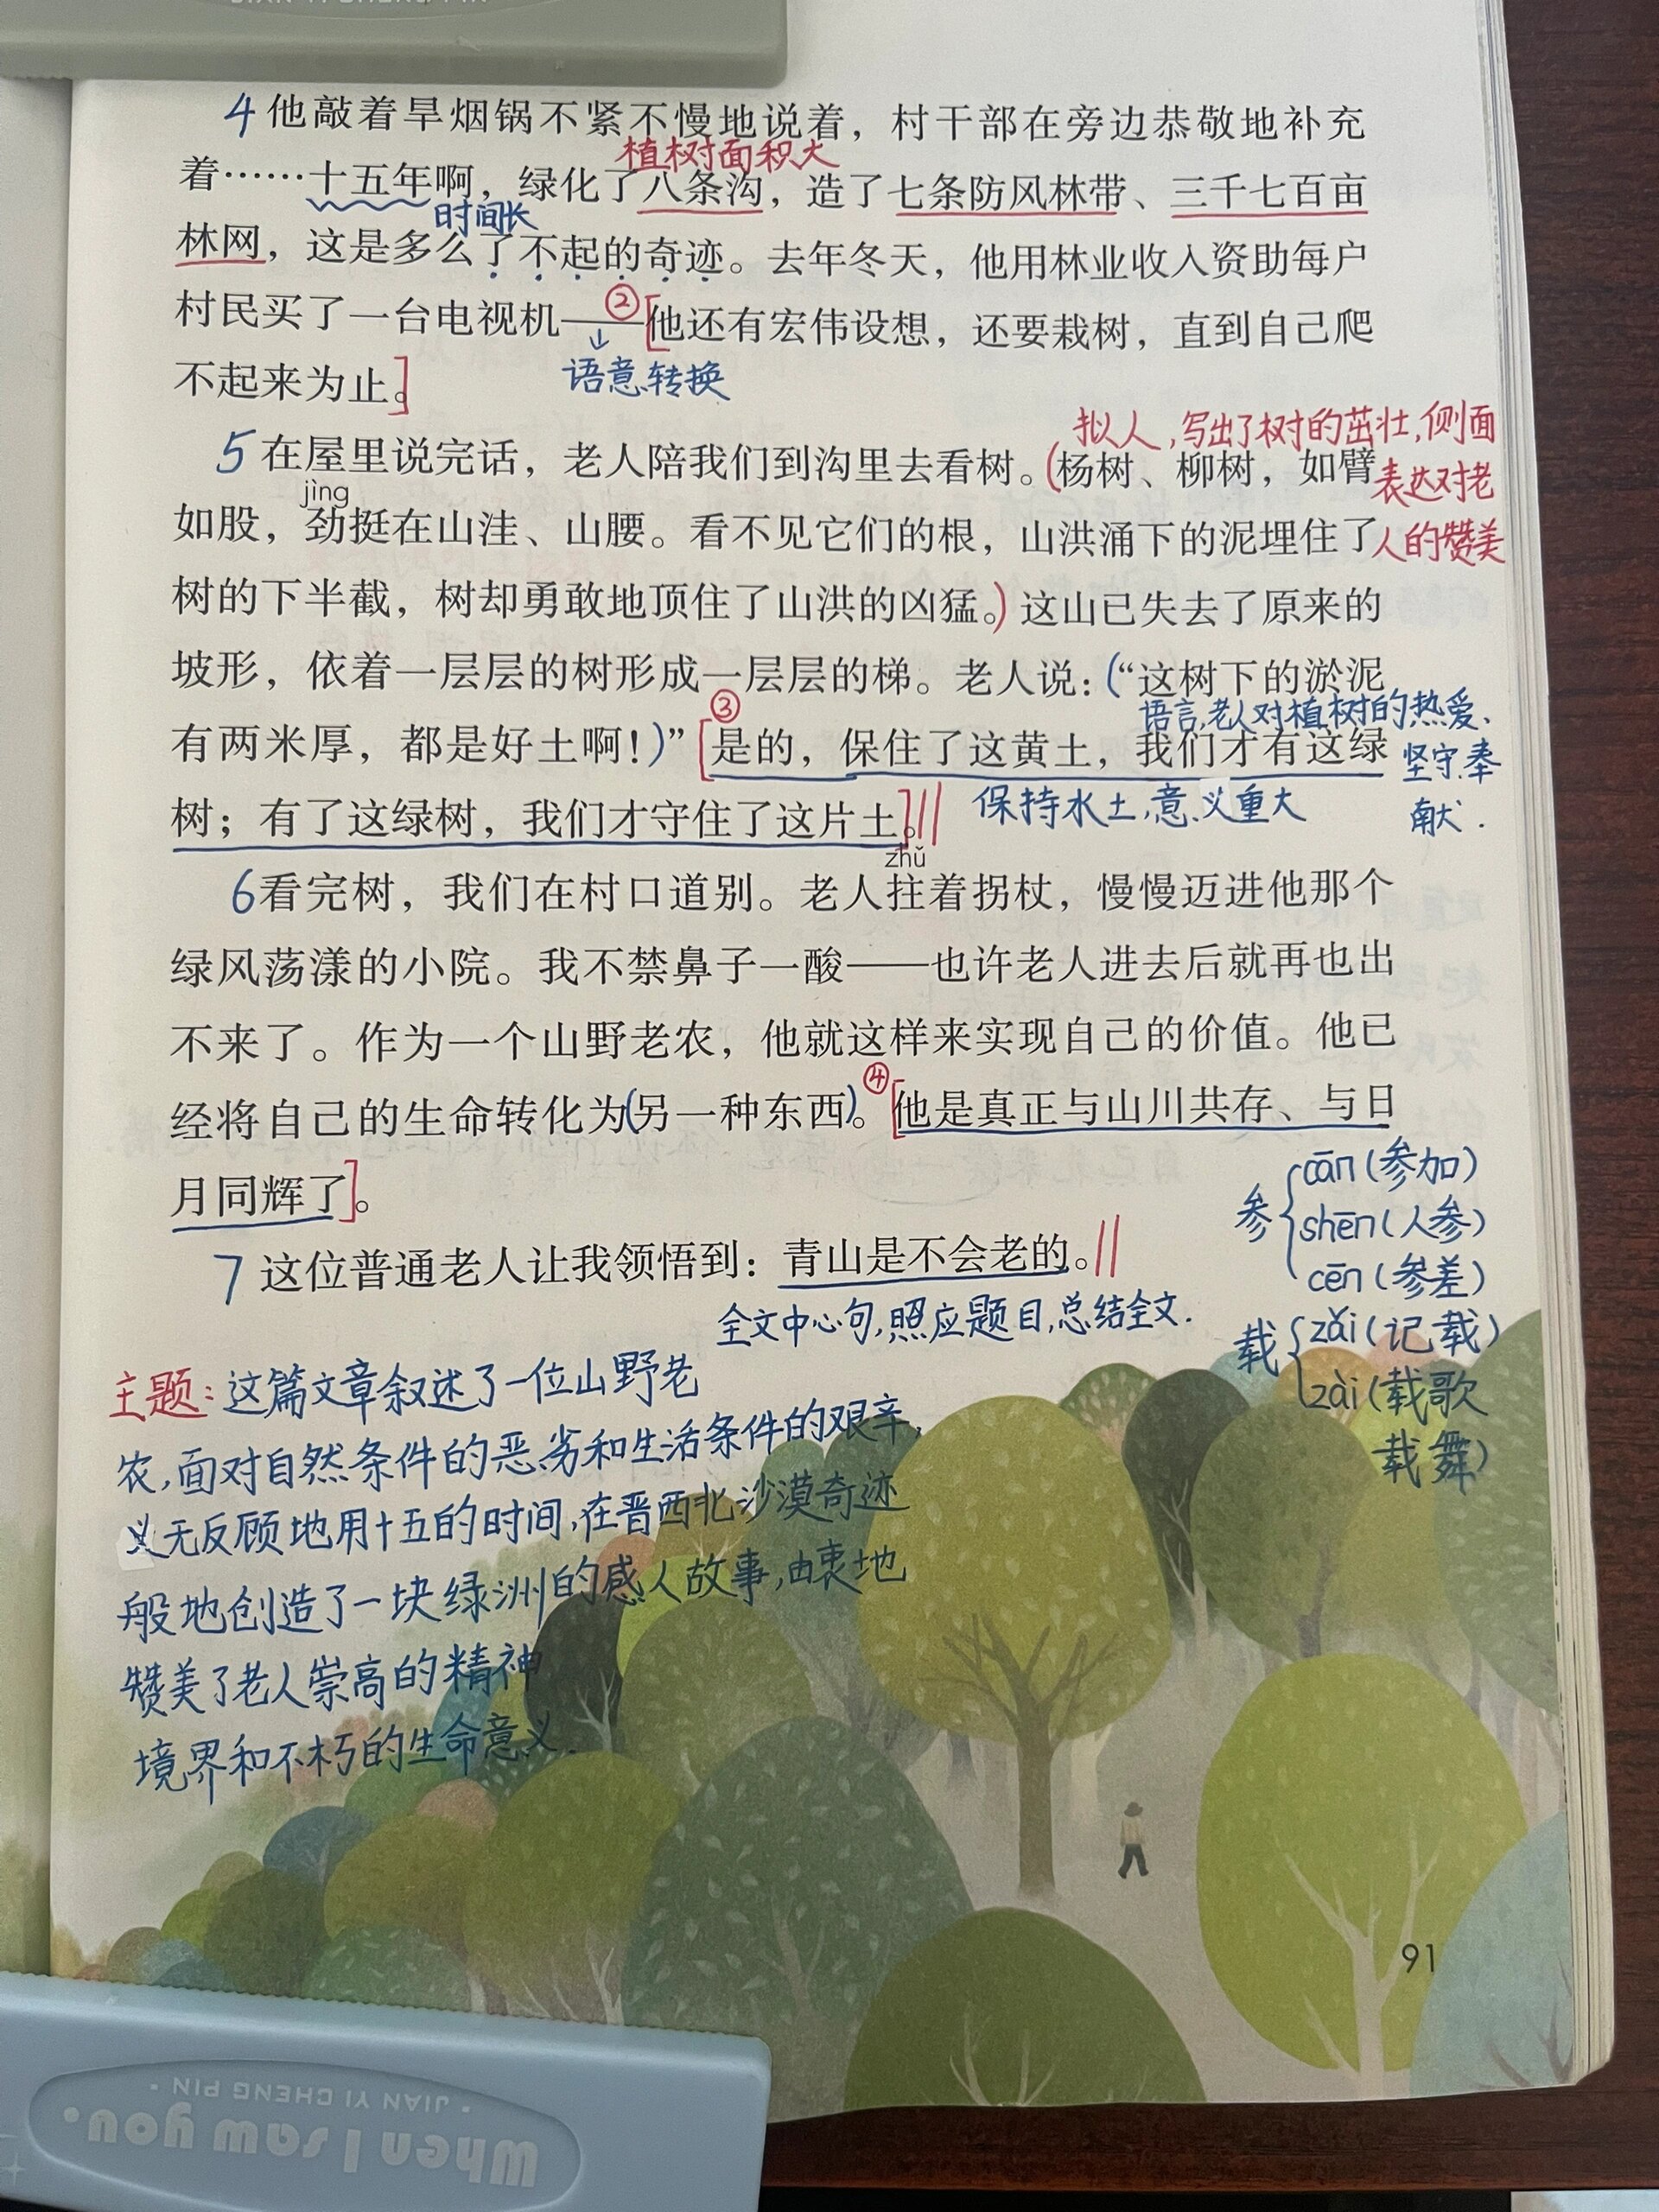 JIAN YI CHENG PIN
4 他敲着旱烟锅不紧不慢地说着，村干部在旁边恭敬地补充
植树面积大
着……十五年啊，绿化了八条沟，造了七条防风林带、三千七百亩
时间长
林网，这是多么了不起的奇迹。去年冬天，他用林业收入资助每户
②
村民买了一台电视机——[他还有宏伟设想，还要栽树，直到自己爬
语意转换
不起来为止。]
拟人，写出了树的茁壮，侧面
5 在屋里说完话，老人陪我们到沟里去看树。(杨树、柳树，如臂
表达对老
jìng
如股，劲挺在山洼、山腰。看不见它们的根，山洪涌下的泥埋住了
人的赞美
树的下半截，树却勇敢地顶住了山洪的凶猛。) 这山已失去了原来的
坡形，依着一层层的树形成一层层的梯。老人说：(“这树下的淤泥
③
语言，老人对植树的热爱、
有两米厚，都是好土啊！)” [是的，保住了这黄土，我们才有这绿
坚守、奉
树；有了这绿树，我们才守住了这片土。]
保持水土，意义重大
献.
zhǔ
6 看完树，我们在村口道别。老人拄着拐杖，慢慢迈进他那个
绿风荡漾的小院。我不禁鼻子一酸——也许老人进去后就再也出
不来了。作为一个山野老农，他就这样来实现自己的价值。他已
④
经将自己的生命转化为(另一种东西)。[他是真正与山川共存、与日
月同辉了]。
参
cān(参加)
shēn(人参)
cēn(参差)
7 这位普通老人让我领悟到：青山是不会老的。
全文中心句，照应题目，总结全文.
载
zǎi(记载)
zài(载歌
载舞)
主题：这篇文章叙述了一位山野老
农，面对自然条件的恶劣和生活条件的艰辛，
义无反顾地用十五的时间，在晋西北沙漠奇迹
般地创造了一块绿洲的感人故事，由衷地
赞美了老人崇高的精神
境界和不朽的生命意义.
91
JIAN YI CHENG PIN
When I saw you.